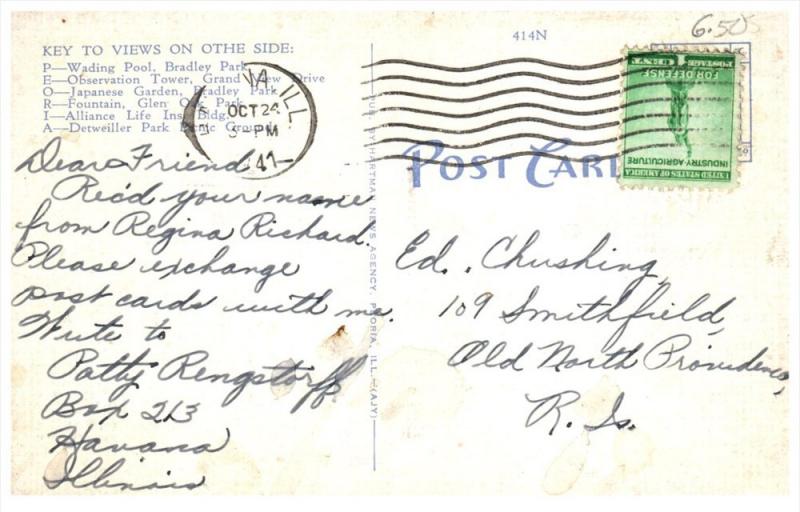 6.50
414N
KEY TO VIEWS ON OTHE SIDE:
P—Wading Pool, Bradley Park
E—Observation Tower, Grand View Drive
O—Japanese Garden, Bradley Park
R—Fountain, Glen Oak Park
I—Alliance Life Ins. Bldg.
A—Detweiller Park Picnic Ground
ILL.
OCT 24
PM
41
POSTAGE 1 CENT
FOR DEFENSE
INDUSTRY·AGRICULTURE
UNITED STATES OF AMERICA
POST CARD
PUB. BY HARTMAN NEWS AGENCY, PEORIA, ILL.—(AJY)
Dear Friend
Rec'd your name
from Regina Richard.
Please exchange
post cards with me.
Write to
Patty Rengstorff
Box 213
Havana
Illinois
Ed. Chushing,
109 Smithfield,
Old North Providence,
R. Is.